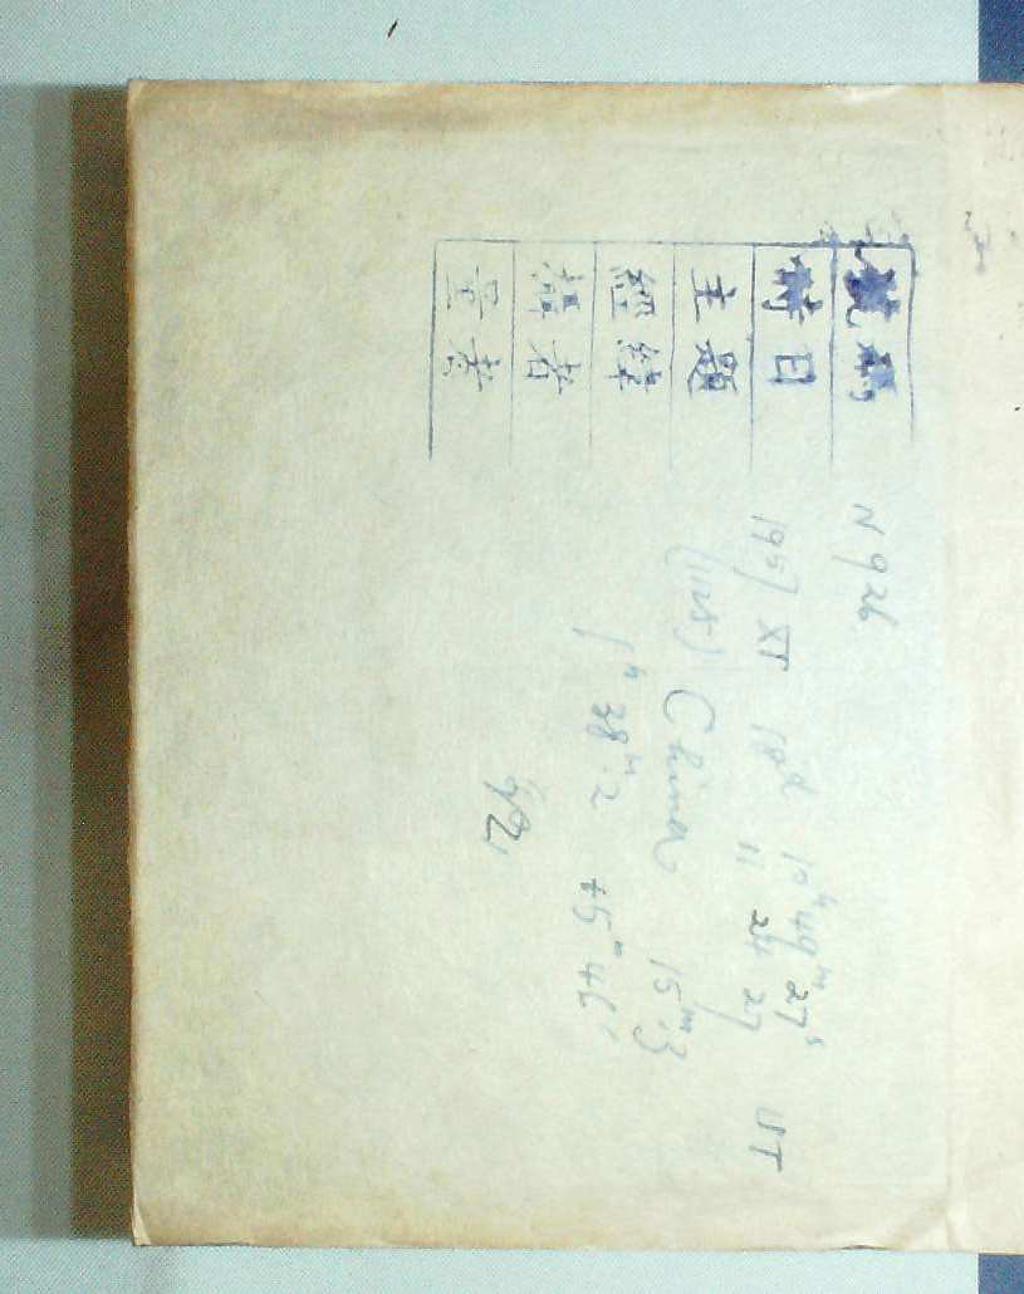 號碼 N 926
時日 1957 XI 18d 10h 49m 27s UT
11 24 27
主題 (1125) China 15m.3
經緯 1h 38m.2 +5° 46'
攝者
量者